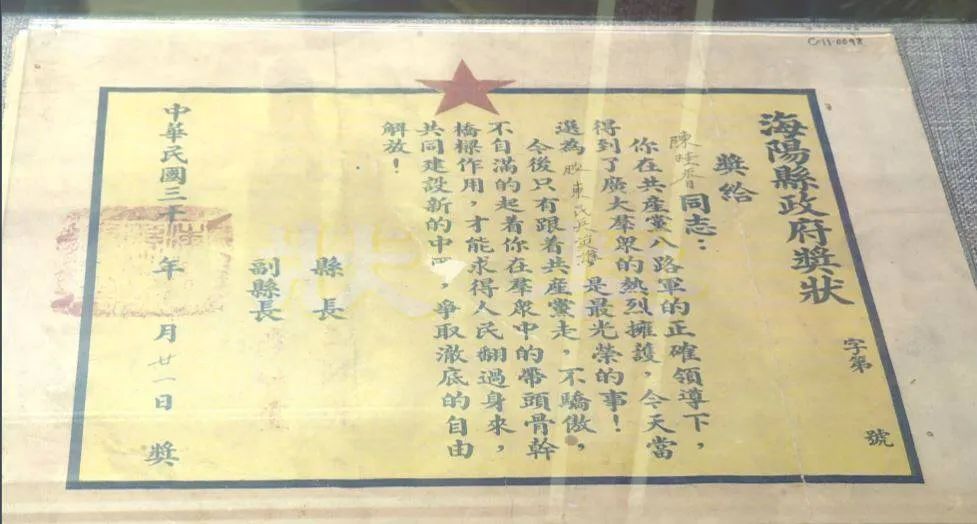 C-11-0098
海陽縣政府獎狀
字第 號
獎給
陳 同志：
你在共產黨八路軍的正確領導下，
得到了廣大羣眾的熱烈擁護，今天當
選為 東民兵 是最光榮的事！
今後只有跟着共產黨走，不驕傲，
不自滿的起着你在羣眾中的帶頭骨幹
橋樑作用，才能求得人民翻過身來，
共同建設新的中 ，爭取澈底的自由
解放！
縣長
副縣長
中華民國三十 年 月廿一日 獎